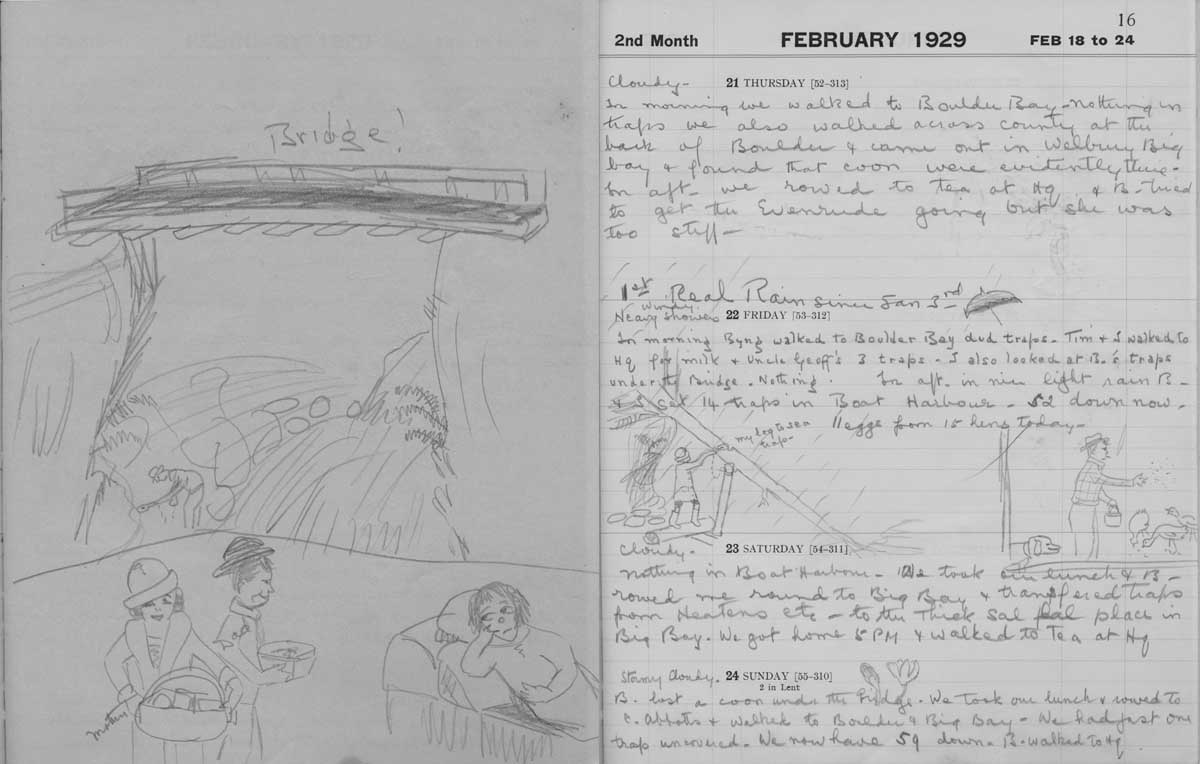 Bridge!
Dad
mother
16
2nd Month FEBRUARY 1929 FEB 18 to 24
Cloudy-
21 THURSDAY [52–313]
In morning we walked to Boulder Bay - nothing in
traps we also walked across county at the
back of Boulder & came out in Welbury Big
bay & found that coon were evidently there -
In aft - we rowed to tea at Hq & B - tried
to get the Evenrude going but she was
too stiff -
1st Real Rain since Jan 3rd
windy
Heavy showers 22 FRIDAY [53–312]
In morning Byng walked to Boulder Bay dud traps - Tim & I walked to
Hq for milk & Uncle Geoff's 3 traps - I also looked at B.'s traps
under the Bridge. Nothing. In aft. in nice light rain B -
& I set 14 traps in Boat Harbour - 52 down now -
11 eggs from 15 hens today -
my log to sea
trap -
23 SATURDAY [54–311]
Cloudy -
nothing in Boat Harbour - We took our lunch & B -
rowed me round to Big Bay & transfered traps
from Heatens etc - to the Thick Sal place in
Big Bay. We got home 5 PM & walked to Tea at Hq
Stormy Cloudy. 24 SUNDAY [55–310]
2 in Lent
B. lost a coon under the Bridge. We took our lunch & rowed to
C. Abbots & walked to Boulder & Big Bay - We had just one
trap uncovered. We now have 59 down. B. walked to Hq